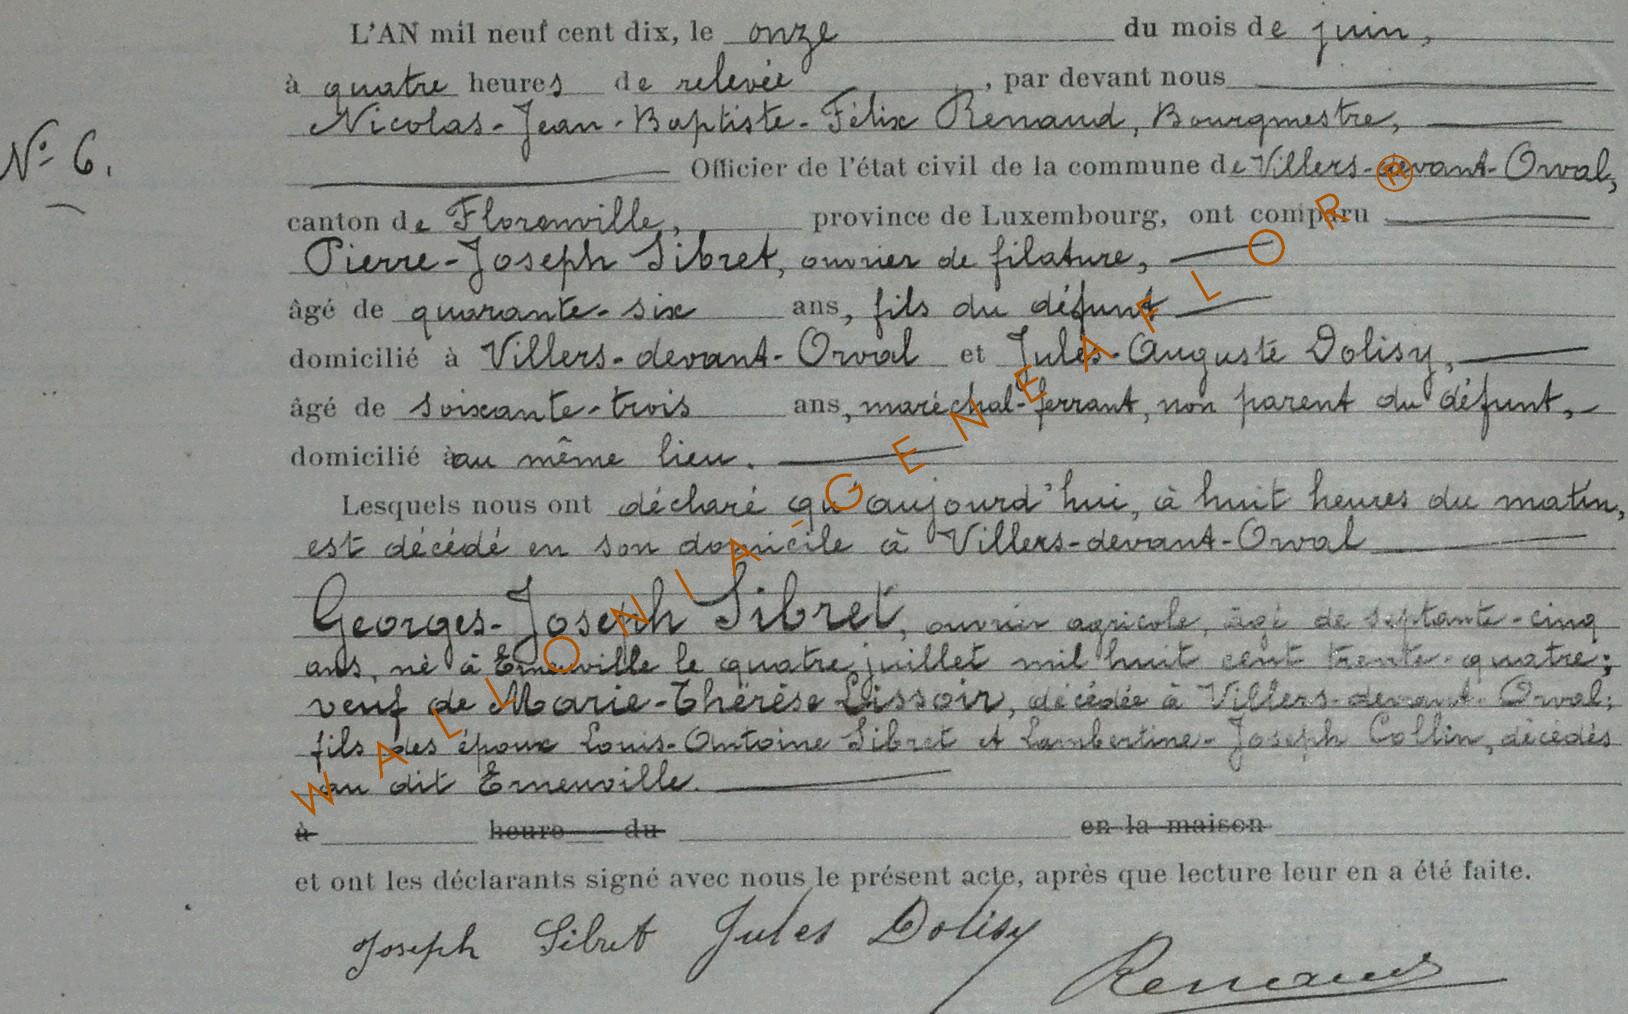 L'AN mil neuf cent dix, le onze du mois de juin,
à quatre heures de relevée, par devant nous
Nicolas-Jean-Baptiste-Félix Renaud, Bourgmestre,
N° 6.
Officier de l'état civil de la commune de Villers-devant-Orval,
canton de Florenville, province de Luxembourg, ont comparu
Pierre-Joseph Sibret, ouvrier de filature,
âgé de quarante-six ans, fils du défunt
domicilié à Villers-devant-Orval et Jules-Auguste Dolisy,
âgé de soixante-trois ans, maréchal-ferrant, non parent du défunt,
domicilié à au même lieu.
Lesquels nous ont déclaré qu'aujourd'hui, à huit heures du matin,
est décédé en son domicile à Villers-devant-Orval
Georges-Joseph Sibret, ouvrier agricole, âgé de septante-cinq
ans, né à Erneuville le quatre juillet mil huit cent trente-quatre;
veuf de Marie-Thérèse Lissoir, décédée à Villers-devant-Orval;
fils des époux Louis-Antoine Sibret et Lambertine-Joseph Collin, décédés
au dit Erneuville.
à heure du en la maison
et ont les déclarants signé avec nous le présent acte, après que lecture leur en a été faite.
Joseph Sibret Jules Dolisy
Renaud
WALLONIA-GENEAFLOR R®